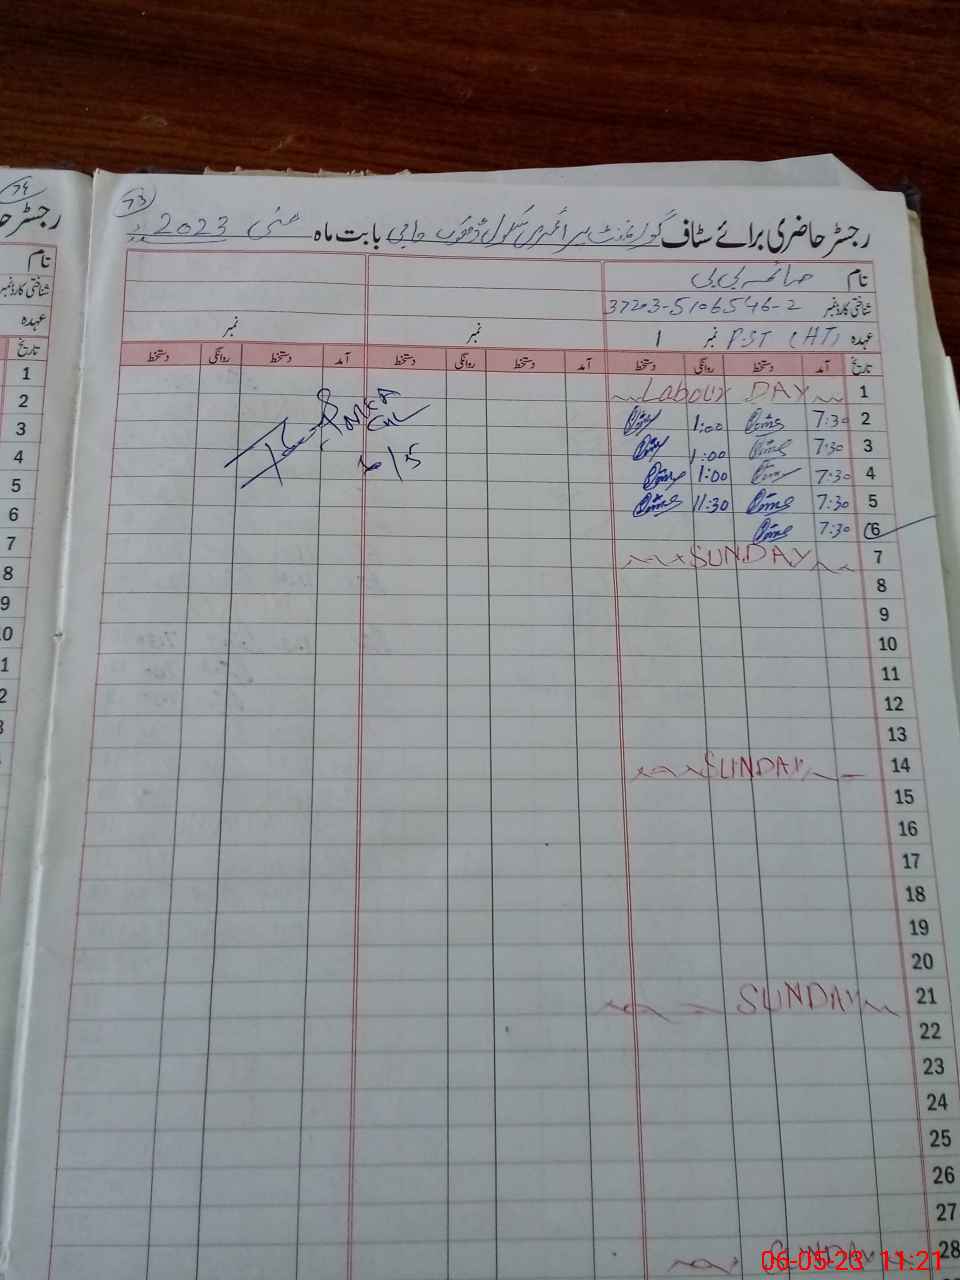 74
73
رجسٹر حاضری برائے سٹاف گورنمنٹ پرائمری سکول ڈھوک حاجی بابت ماہ مئی 2023
نام صائمہ بی بی
شناختی کارڈ نمبر 37203-5106546-2
عہدہ P.ST (HT) نمبر 1 نمبر نمبر
تاریخ آمد دستخط روانگی دستخط آمد دستخط روانگی دستخط آمد دستخط روانگی دستخط
1 Labour DAY
2 7:30 1:00
3 7:30 1:00
4 7:30 1:00
5 7:30 11:30
6 7:30
7 SUNDAY
8
9
10
11
12
13
14 SUNDAY
15
16
17
18
19
20
21 SUNDAY
22
23
24
25
26
27
28 SUNDAY
نام
شناختی کارڈ نمبر
عہدہ
تاریخ
1
2
3
4
5
6
7
8
9
06-05-23 11:21